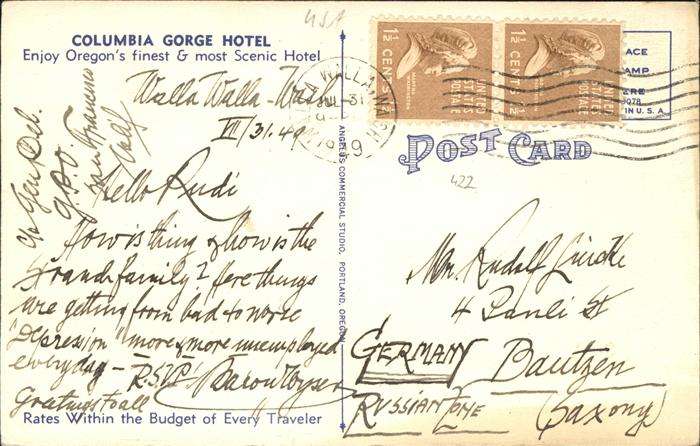 COLUMBIA GORGE HOTEL
Enjoy Oregon's finest & most Scenic Hotel
Walla Walla - Wash
VII/31.49
c/o Gen Del.
G.P.O
San Francisco
Calif
Hello Rudi
How is thing & how is the
Grand family? Here things
are getting from bad to worse
"Depression" more & more unemployed
everyday -
R.S.V.P.
Greetings to all
Rates Within the Budget of Every Traveler
ANGELUS COMMERCIAL STUDIO, PORTLAND, OREGON
USA
1½ CENTS
MARTHA WASHINGTON
UNITED STATES POSTAGE
1½ CENTS
UNITED STATES POSTAGE
WALLA WALLA
JUL 31
1949
ACE
AMP
ERE
3078
IN U. S. A.
POST CARD
422
Mr. Rudolf
4 Pauli St
GERMANY Bautzen
RUSSIAN ZONE (Saxony)